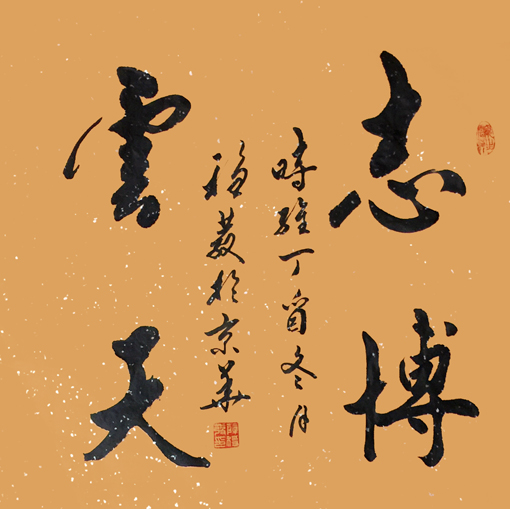 志博
雲天
時維丁酉冬月
於京華